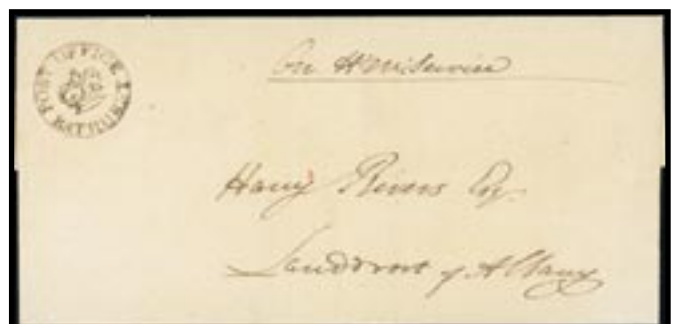 POST OFFICE BATHURST
On H M Service
Harry Rivers Esq
Landdrost of Albany